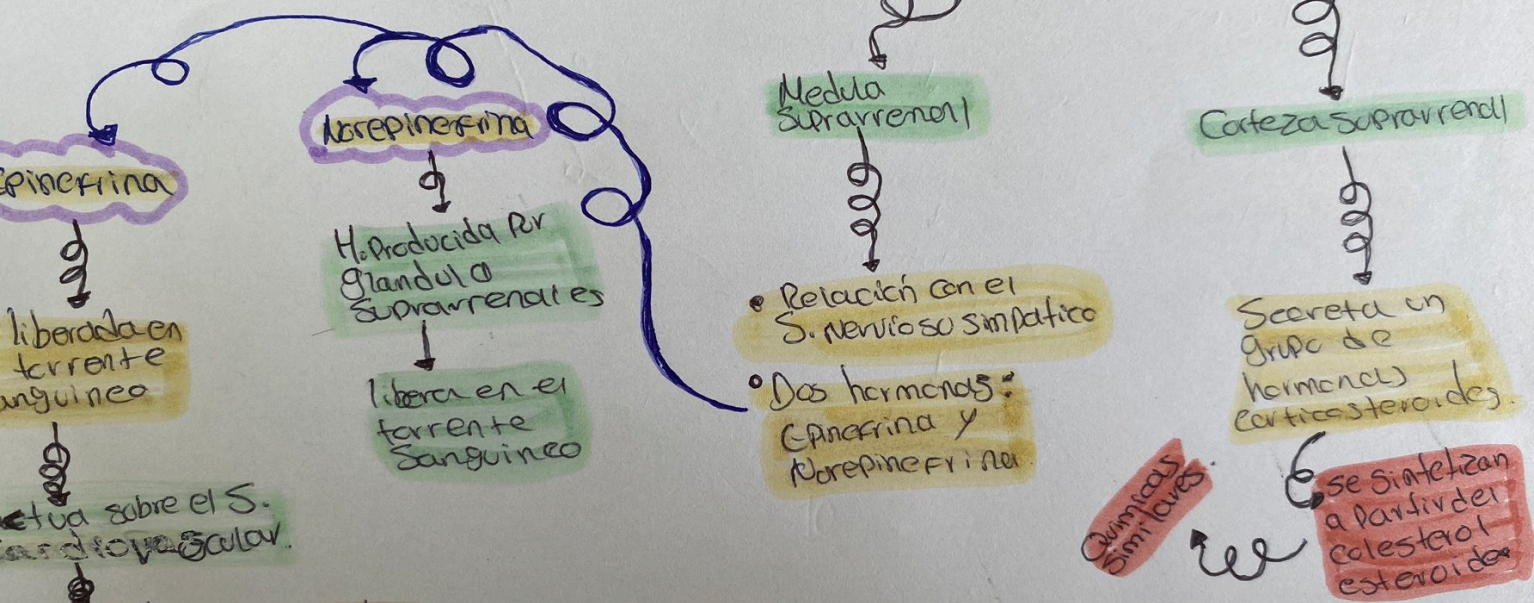 Epinefrina
liberada en
torrente
anguineo
ctua sobre el S.
cardiovascular.
Norepinefrina
H. Producida por
glandula
suprarrenales
libera en el
torrente
sanguineo
Medula
Suprarrenal
• Relación con el
S. nervioso simpatico
• Dos hormonas:
Epinefrina y
Norepinefrina
Corteza suprarrenal
Secreta un
grupo de
hormonas
corticosteroides.
se sintetizan
a partir del
colesterol
esteroide
Quimicas
similares.